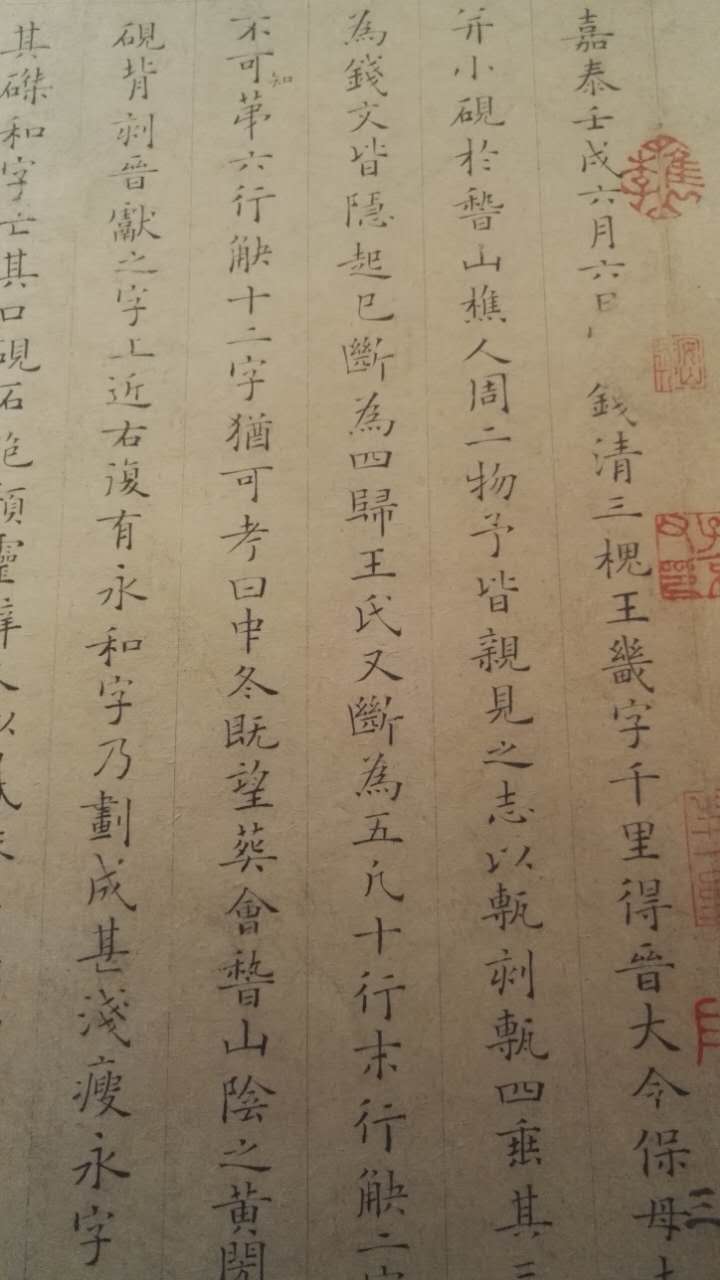 嘉泰壬戌六月六日錢清三槐王畿字千里得晉大令保母
并小硯於嵇山樵人周二物予皆親見之志以甎刻甎四垂其三
為錢文皆隱起已斷為四歸王氏又斷為五凡十行末行缺二字
不可知苐六行缺十二字猶可考曰中冬既望葬會嵇山陰之黃閍
硯背刻晉獻之字上近右復有永和字乃劃成甚淺瘦永字
其磔和字亡其口硯石